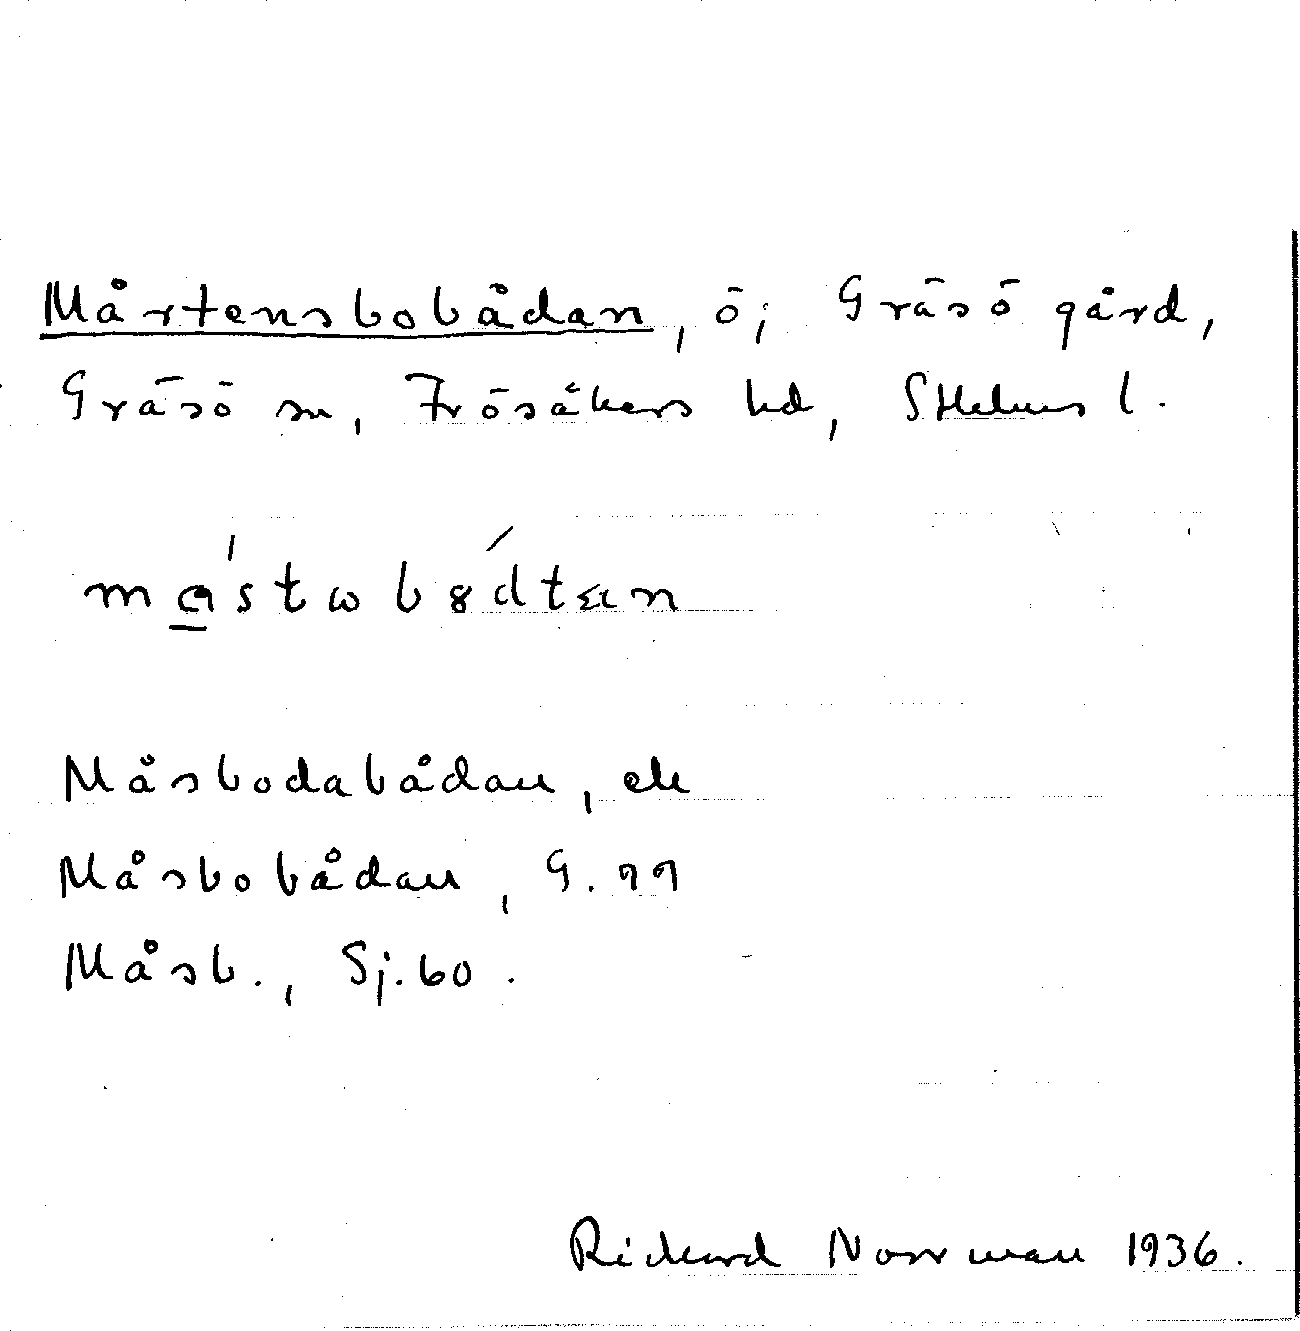 Mårtensbobådan, ö; Gräsö gård,
Gräsö sn, Frösåkers hd, Sthlms l.
Måsbodabådan, ek
Måsbobådan, G. 99
Måsb., Sj. 60.
Rickard Norrman 1936.